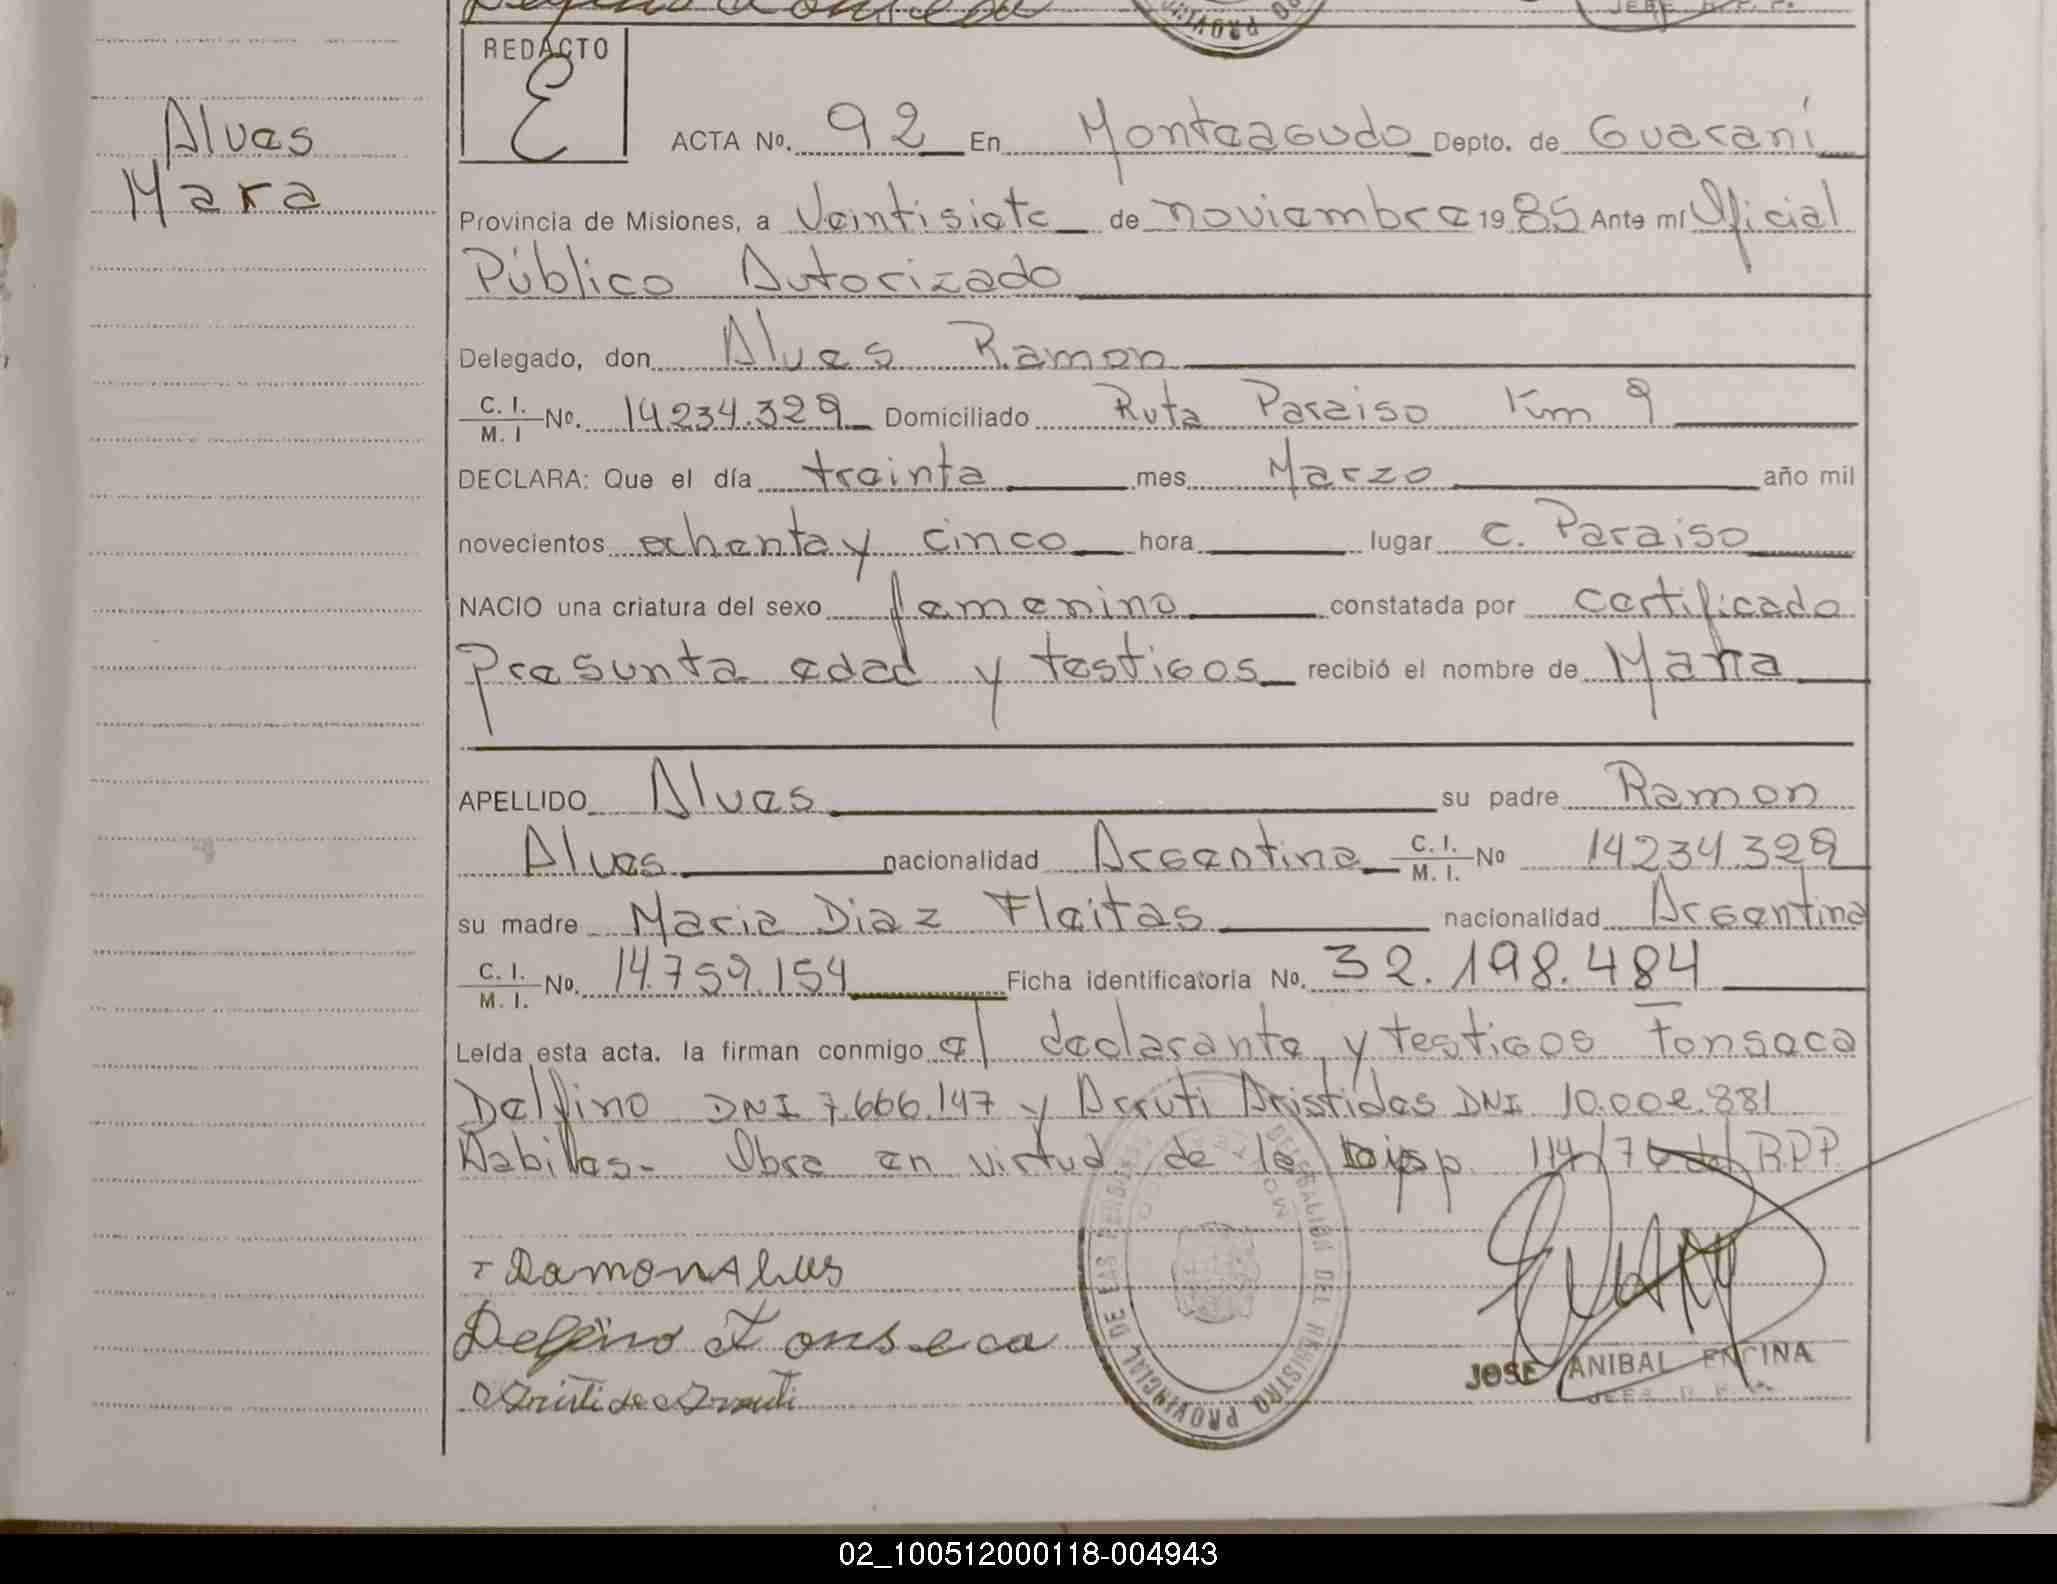 Delfino Fonseca
PROVINCIAL
JEFE R. P. P.
REDACTO
E
Alves
Mara
ACTA No. 92 En Monteagudo Depto. de Guaraní
Provincia de Misiones, a Veintisiete de noviembre 1985 Ante mí Oficial
Público Autorizado
Delegado, don Alves Ramon
C. I. / M. I No. 14.234.329 Domiciliado Ruta Paraiso Km 9
DECLARA: Que el día treinta mes Marzo año mil
novecientos ochenta y cinco hora lugar C. Paraiso
NACIO una criatura del sexo femenino constatada por certificado
Presunta edad y testigos recibió el nombre de Mara
APELLIDO Alves su padre Ramon
Alves nacionalidad Argentina C. I. / M. I. No 14234.329
su madre Maria Diaz Fleitas nacionalidad Argentina
C. I. / M. I. No. 14.759.154 Ficha identificatoria No. 32.198.484
Leída esta acta. la firman conmigo el declarante y testigos Fonseca
Delfino DNI 7.666.147 y Arruti Aristides DNI 10.002.881
Habiles.- Obra en virtud de la Disp. 114/76 del RPP.
Ramon Alves
Delfino Fonseca
Aristide Arruti
DELEGACIÓN DEL REGISTRO PROVINCIAL DE LAS PERSONAS
JOSE ANIBAL ENCINA
JEFE R. P. P.
02_100512000118-004943